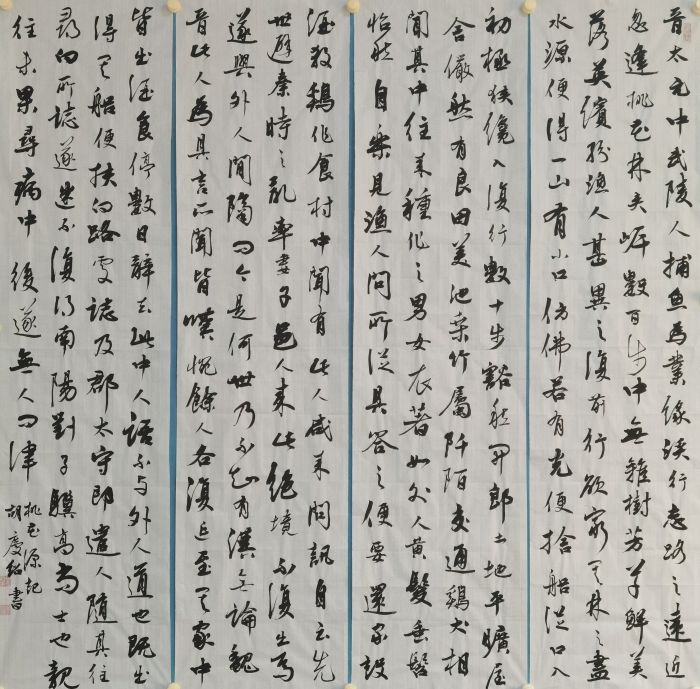 晉太元中武陵人捕魚為業緣溪行忘路之遠近
忽逢桃花林夾岸數百步中無雜樹芳草鮮美
落英繽紛漁人甚異之復前行欲窮其林之盡
水源便得一山有小口仿佛若有光便捨船從口入
初極狹纔入復行數十步豁然開郎土地平曠屋
舍儼然有良田美池桑竹屬阡陌交通鷄犬相
聞其中往来種作之男女衣著如外人黄髮垂髫
怡然自樂見漁人問所從具答之便要還家設
酒殺鷄作食村中聞有此人咸来問訊自云先
世避秦時之亂率妻子邑人来此絶境不復出焉
遂與外人間隔問今是何世乃不知有漢無論魏
晉此人為具言所聞皆嘆惋餘人各復延至其家中
皆出酒食停數日辭去此中人語不与外人道也既出
得其船便扶向路處誌及郡太守即遣人隨其往
尋向所誌遂迷不復得南陽劉子驥高尚士也親
往未果尋病中 後遂無人問津
桃花源記
胡慶書